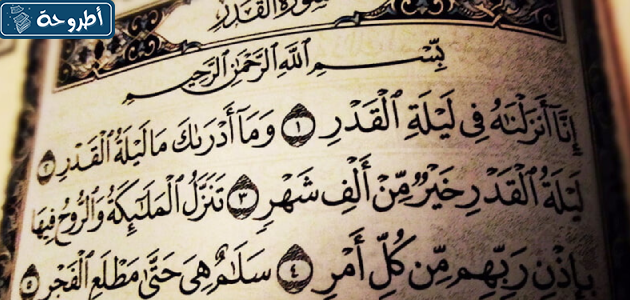 أطروحة
سورة القدر
بِسْمِ ٱللَّهِ ٱلرَّحْمَٰنِ ٱلرَّحِيمِ
إِنَّآ أَنزَلْنَٰهُ فِى لَيْلَةِ ٱلْقَدْرِ ١ وَمَآ أَدْرَىٰكَ مَا لَيْلَةُ ٱلْقَدْرِ ٢
لَيْلَةُ ٱلْقَدْرِ خَيْرٌ مِّنْ أَلْفِ شَهْرٍ ٣ تَنَزَّلُ ٱلْمَلَٰٓئِكَةُ وَٱلرُّوحُ فِيهَا
بِإِذْنِ رَبِّهِم مِّن كُلِّ أَمْرٍ ٤ سَلَٰمٌ هِىَ حَتَّىٰ مَطْلَعِ ٱلْفَجْرِ ٥